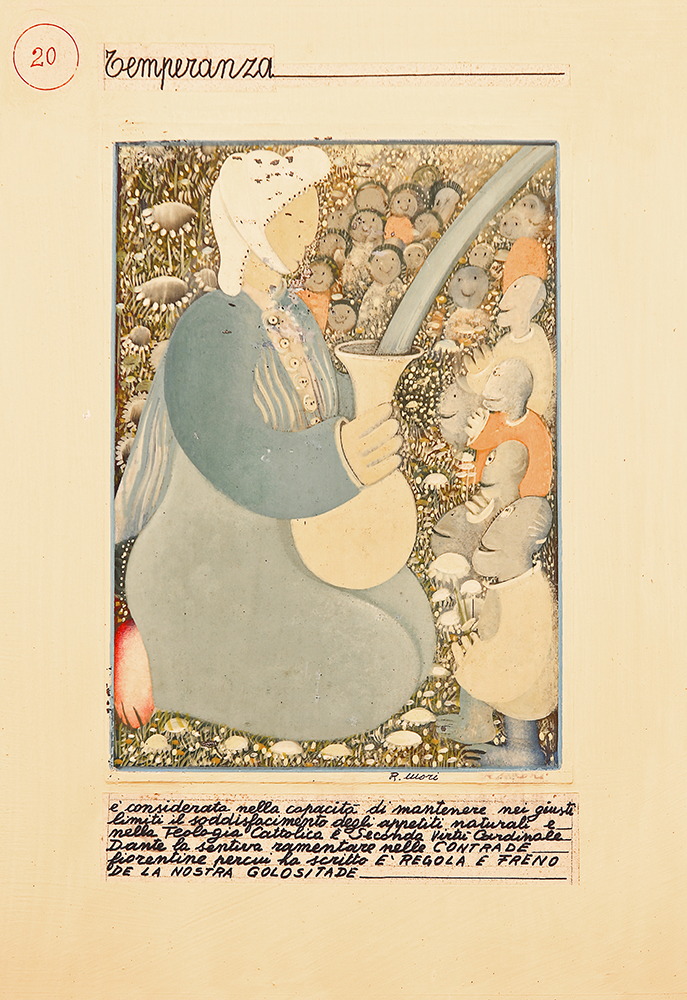 20
Temperanza
R. Mori
è considerata nella capacità di mantenere nei giusti
limiti il soddisfacimento degli appetiti naturali e
nella Teologia Cattolica è Seconda Virtù Cardinale
Dante la sentiva ramentare nelle CONTRADE
fiorentine percui ha scritto E' REGOLA E FRENO
DE LA NOSTRA GOLOSITADE